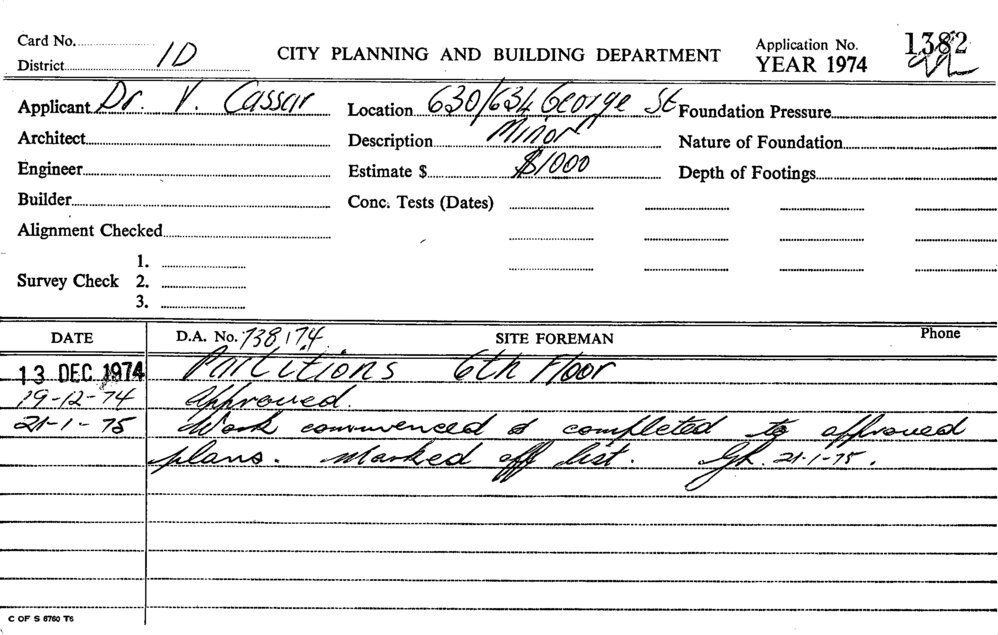 Card No. CITY PLANNING AND BUILDING DEPARTMENT Application No. 1382
District 1D YEAR 1974
Applicant Dr. V. Cassar Location 630/634 George St Foundation Pressure
Architect Description Minor Nature of Foundation
Engineer Estimate $ $1000 Depth of Footings
Builder Conc. Tests (Dates)
Alignment Checked
1.
Survey Check 2.
3.
DATE D.A. No. 738/74 SITE FOREMAN Phone
13 DEC 1974 Partitions 6th Floor
19-12-74 Approved.
21-1-75 Work commenced & completed to approved
plans. Marked off list. 21-1-75.
C OF S 6760 T6